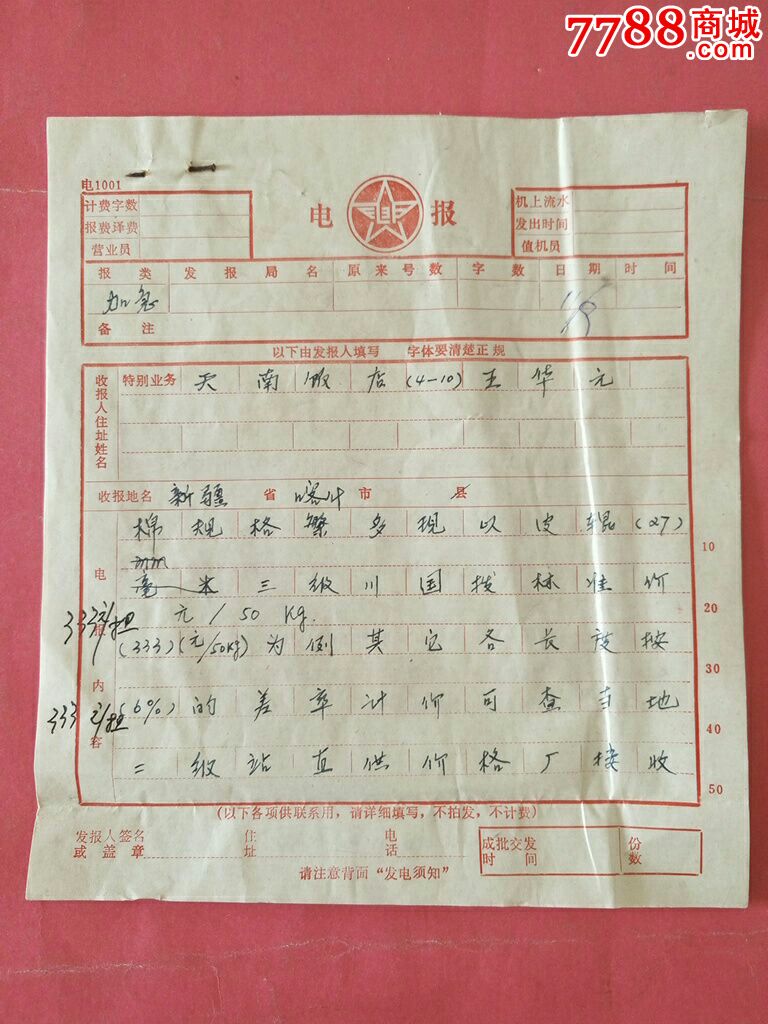 7788商城
电1001
计费字数
报费译费
营业员
电 报
机上流水
发出时间
值机员
报类 发报局名 原来号数 字数 日期 时间
加急
备注
以下由发报人填写 字体要清楚正规
收报人住址姓名
特别业务 天南饭店(4-10)王华元
收报地名 新疆 省 喀什 市 县
电报内容
棉规格繁多现以皮辊(27)
10
mm
毫米三级 国拨标准价
20
元/50Kg.
333元/担
(333)(元/50Kg)为例其它各长度按
30
333元/担
(6%)的差率计价可查当地
40
二级站直供价格厂接收
50
(以下各项供联系用,请详细填写,不拍发,不计费)
发报人签名或盖章 住址 电话
成批交发时间 份数
请注意背面“发电须知”